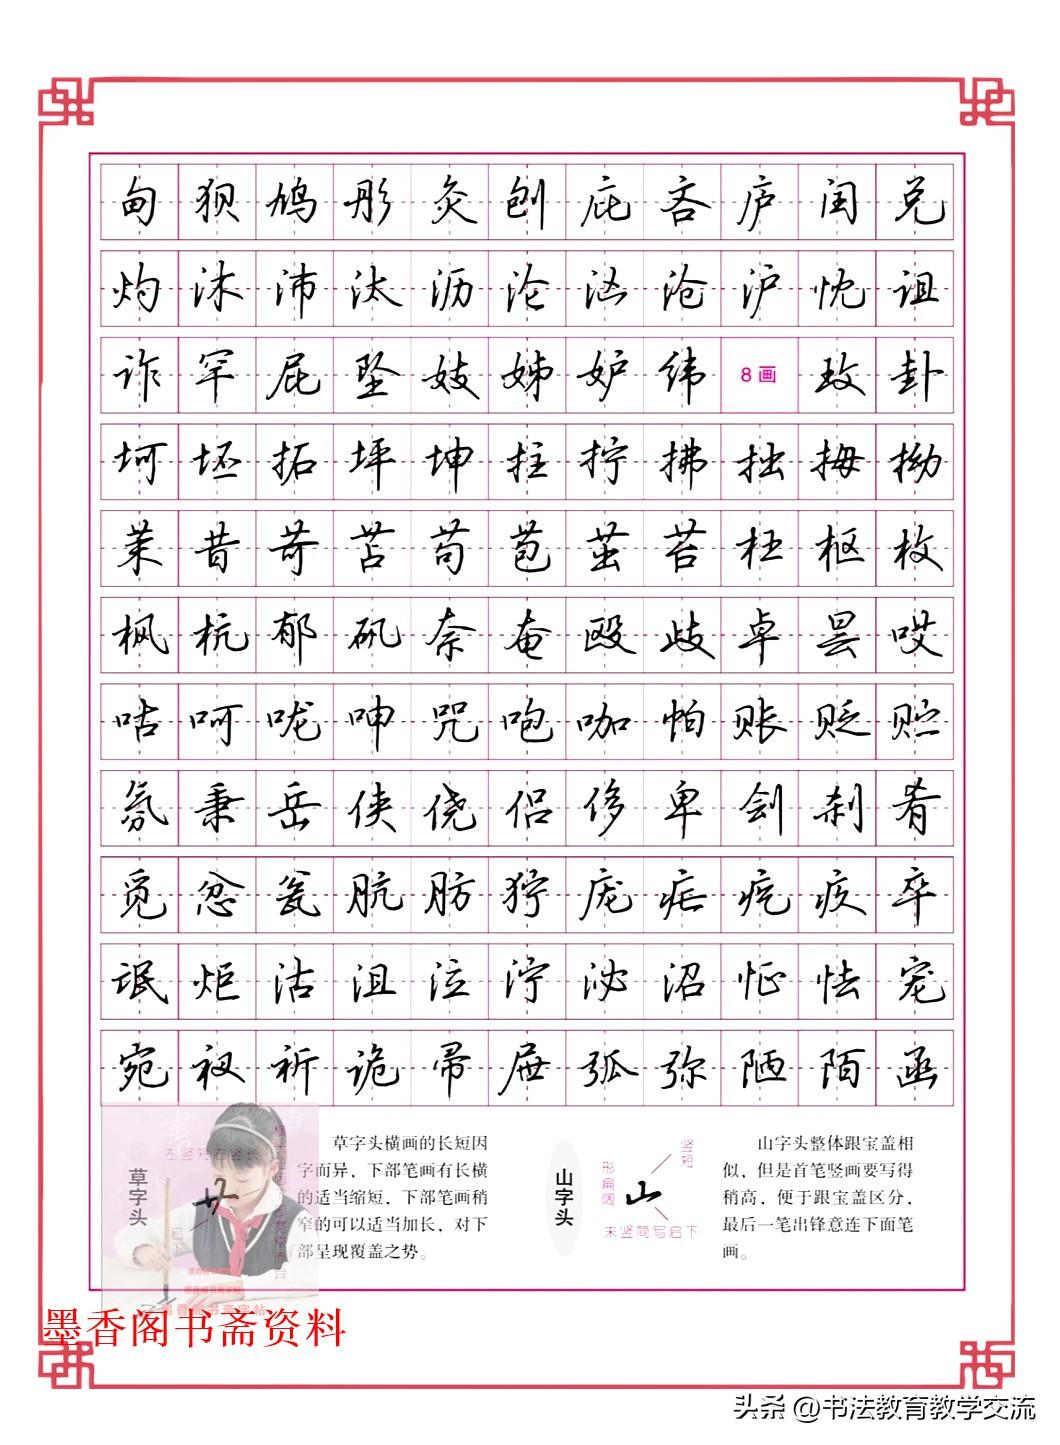 甸狈鸠彤灸刨庇吝庐闰兑
灼沐沛汰沥沦汹沧沪忱诅
诈罕屁坠妓姊妒纬8画玫卦
坷坯拓坪坤拄拧拂拙拇拗
茉昔苛苫苟苞茁苔枉枢枚
枫杭郁矾奈奄殴歧卓昙哎
咕呵咙呻咒咆咖帕账贬贮
氛秉岳侠侥侣侈卑刽刹肴
觅忿瓮肮肪狞庞疟疙疚卒
氓炬沽沮泣泞泌沼怔怯宠
宛衩祈诡帚屉弧弥陋陌函
草字头
左竖短右竖长
启下
草字头横画的长短因
字而异，下部笔画有长横
的适当缩短，下部笔画稍
窄的可以适当加长，对下
部呈现覆盖之势。
山字头
形扁阔
山
竖短
末竖简写启下
山字头整体跟宝盖相
似，但是首笔竖画要写得
稍高，便于跟宝盖区分，
最后一笔出锋意连下面笔
画。
墨香阁书斋字帖
墨香阁书斋资料
头条 @书法教育教学交流